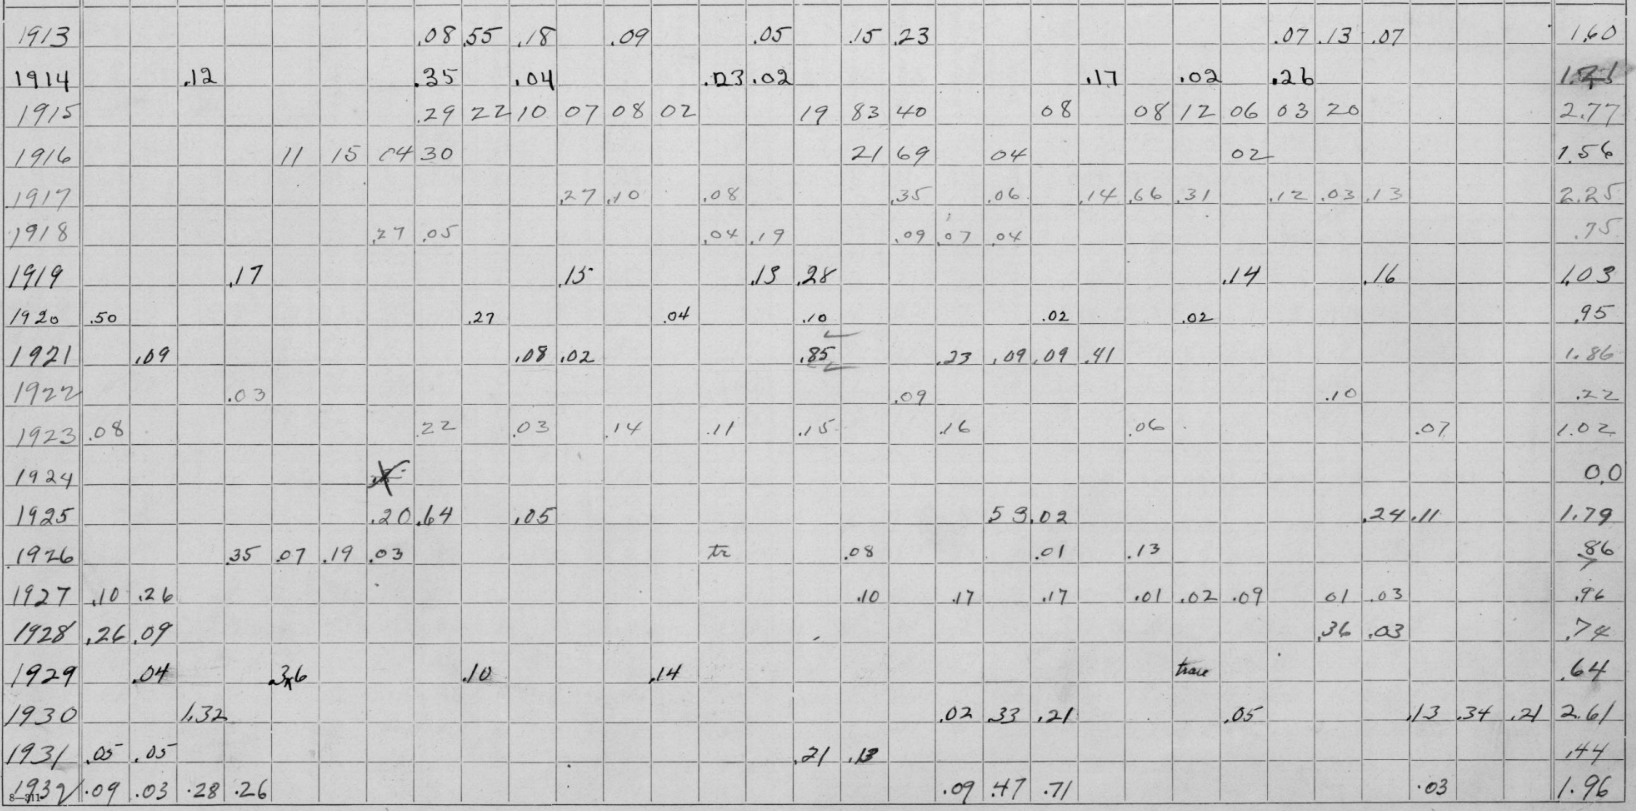 1913 .08 .55 .18 .09 .05 .15 .23 .07 .13 .07 1.60
1914 .12 .35 .04 .03 .02 .17 .02 .26
1915 .29 22 10 07 08 02 19 83 40 08 08 12 06 03 20 2.77
1916 11 15 04 30 21 69 04 02 1.56
1917 .27 .10 .08 .35 .06 .14 .66 .31 .12 .03 .13 2.25
1918 .27 .05 .04 .19 .09 .07 .04 .75
1919 .17 .15 .13 .28 .14 .16 1.03
1920 .50 .27 .04 .10 .02 .02 .95
1921 .09 .08 .02 .85 .23 .09 .09 .41 1.86
1922 .03 .09 .10 .22
1923 .08 .22 .03 .14 .11 .15 .16 .06 .07 1.02
1924 0.0
1925 .20 .64 .05 53 .02 .24 .11 1.79
1926 .35 .07 .19 .03 tr .08 .01 .13 .86
1927 .10 .26 .10 .17 .17 .01 .02 .09 01 .03 .96
1928 .26 .09 .36 .03 .74
1929 .04 .36 .10 .14 trace .64
1930 1.32 .02 .33 .21 .05 .13 .34 .21 2.61
1931 .05 .05 .21 .13 .44
1932 .09 .03 .28 .26 .09 .47 .71 .03 1.96